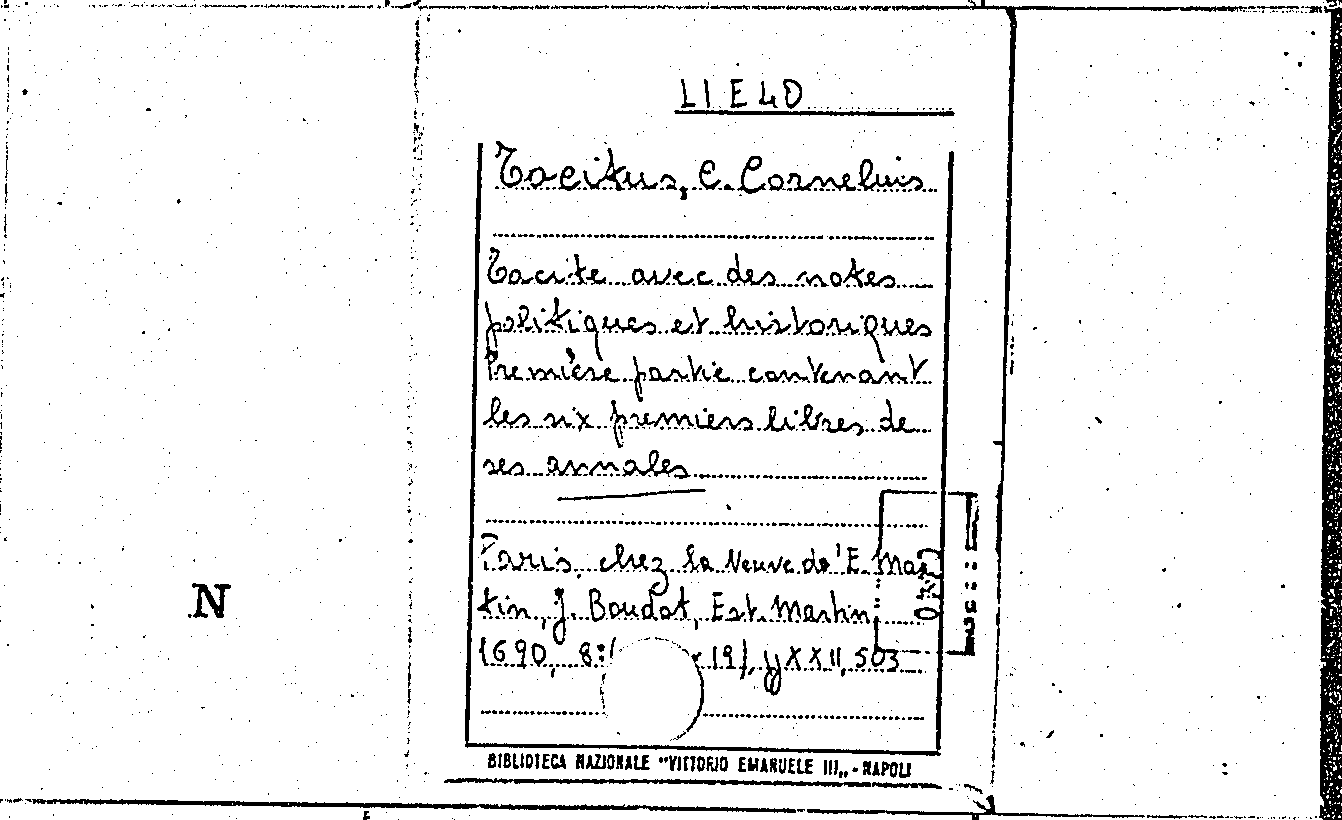 LI E 40
Tacitus, C. Cornelius
Tacite avec des notes
politiques et historiques
Première partie contenant
les six premiers libres de
ses annales
Paris, chez la Veuve de E. Mar
tin, J. Boudot, Est. Martin
N
1690, 8: 19), XXII, 503
BIBLIOTECA NAZIONALE "VITTORIO EMANUELE III„ - NAPOLI